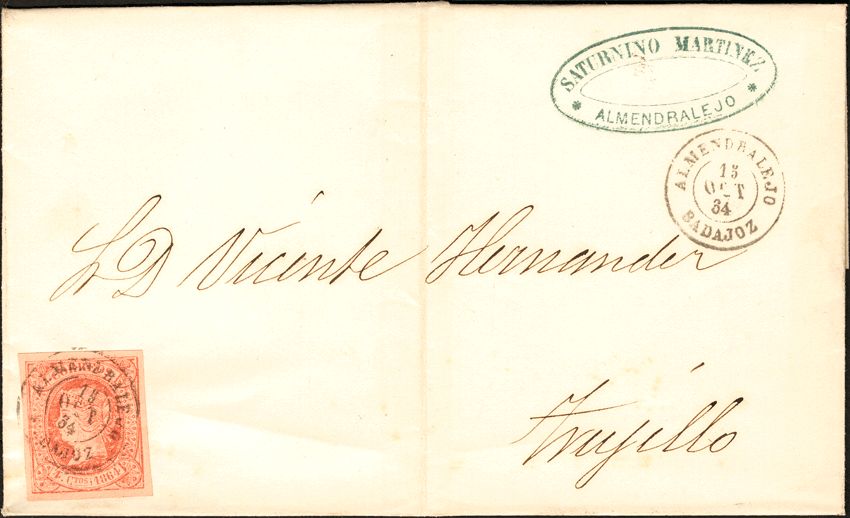 SATURNINO MARTINEZ
* ALMENDRALEJO *
ALMENDRALEJO
15
OCT
34
BADAJOZ
S. D. Vicente Hernandez
Trujillo
ALMENDRALEJO
15
OCT
34
BADAJOZ
4. CTOS. 1864